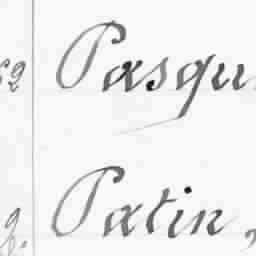 Pasqu
Patin,